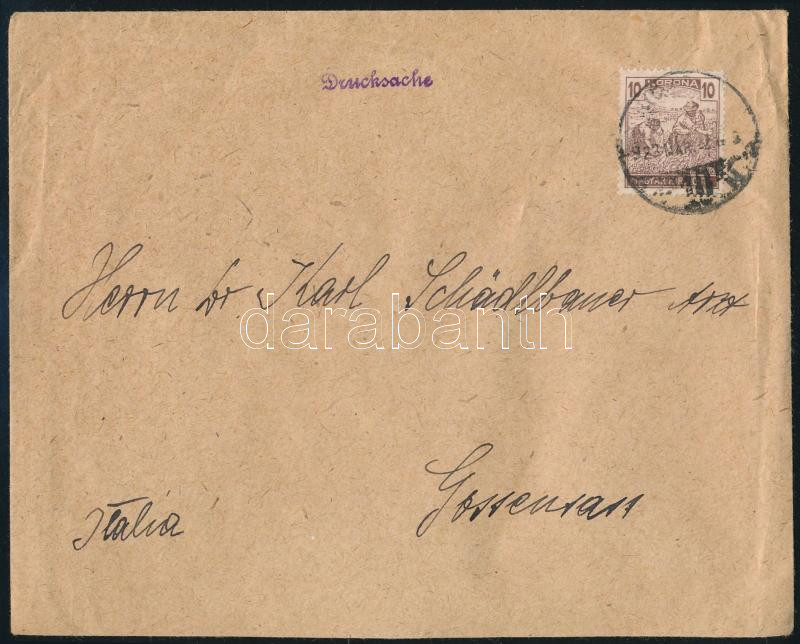 Drucksache
10 KORONA 10
Herrn Dr. Karl Schädlbauer Arzt
darabanth
Gossensass
Itália